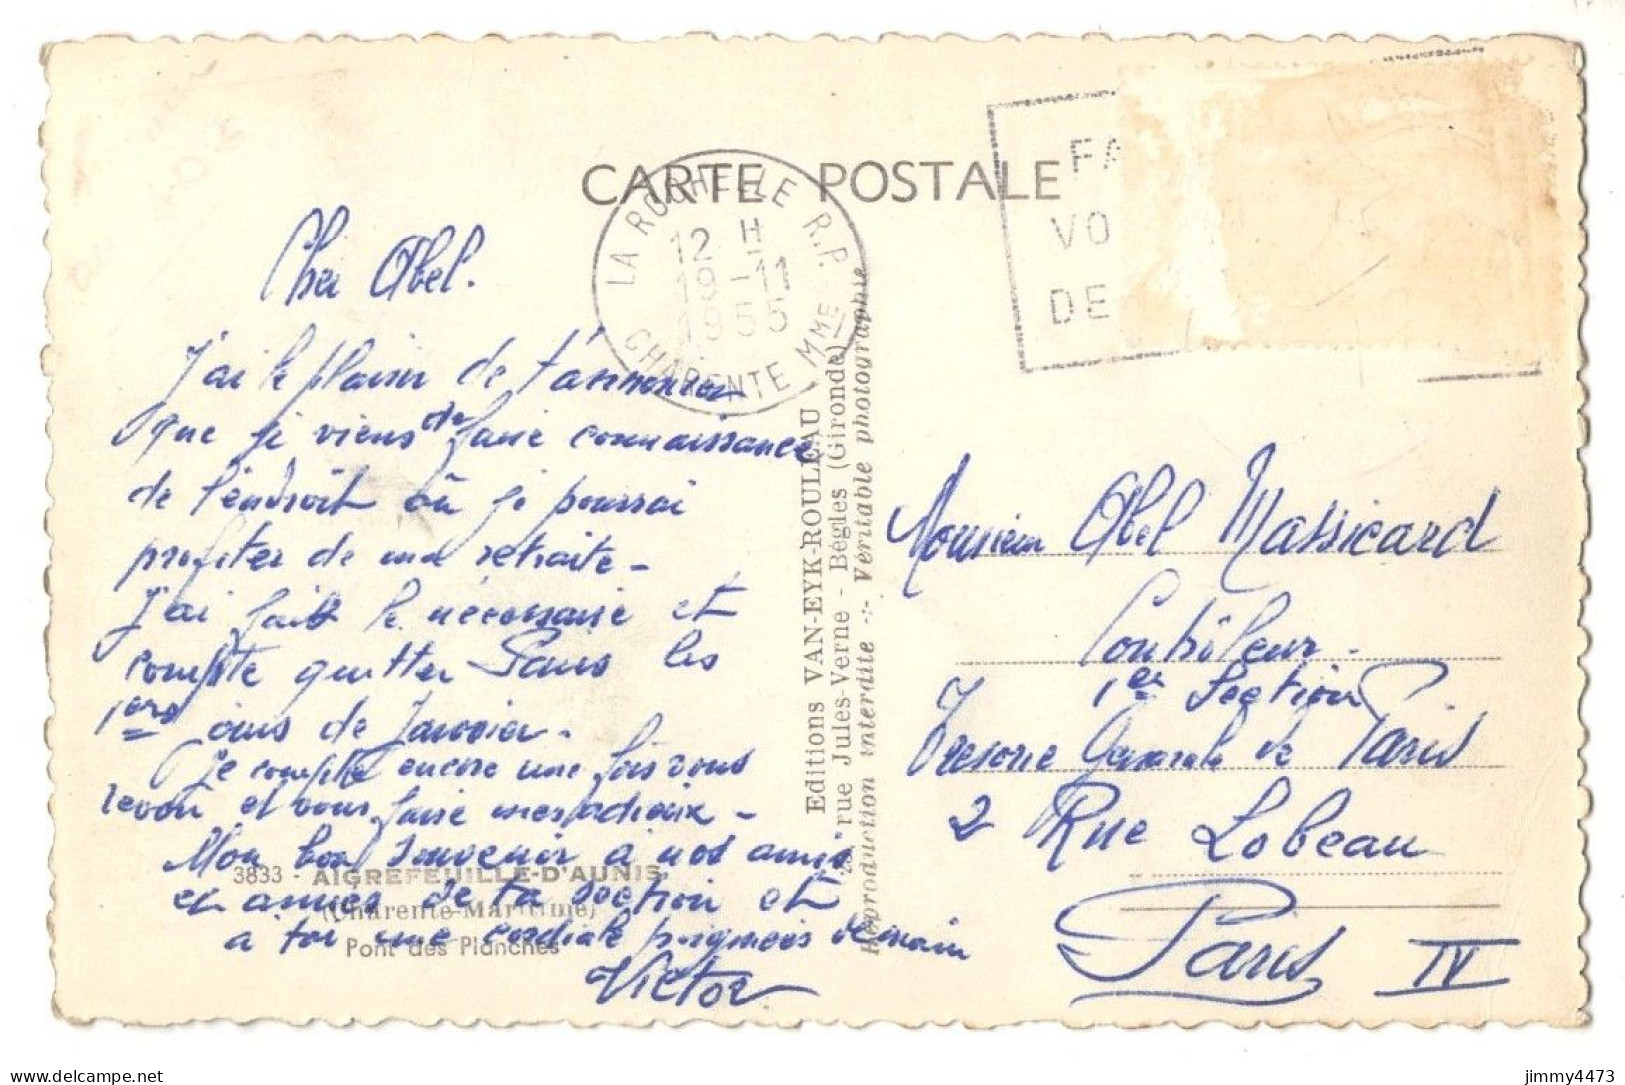 CARTE POSTALE
LA ROCHELLE R.P.
12 H
19-11
1955
CHARENTE MME
FA
VO
DE
Cher Abel.
J'ai le plaisir de t'annoncer
que je viens de faire connaissance
de l'endroit où je pourrai
profiter de ma retraite -
J'ai fait le nécessaire et
compte quitter Paris les
1ers jours de Janvier.
Je compte encore une fois vous
revoir et vous faire mes adieux -
Mon bon souvenir à nos amis
et amies de ta section et
à toi une cordiale poignées de main
Victor
3833 - AIGREFEUILLE-D'AUNIS
(Charente-Maritime)
Pont des Planches
Editions VAN-EYK-ROULEAU
rue Jules-Verne - Bègles (Gironde)
Reproduction interdite -:- Véritable photographie
Monsieur Abel Massicard
Contrôleur -
1er Section
Tresorie Generale de Paris
2 Rue Lobeau
Paris IV
delcampe.net
jimmy4473